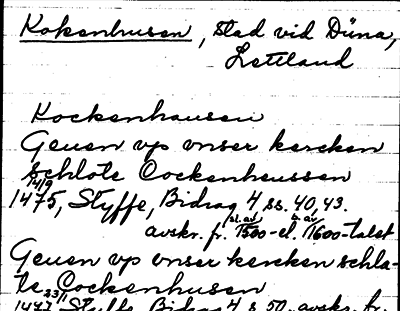 Kokenhusen, stad vid Düna,
Lettland
Kockenhausen
Geuen vp vnser kercken
schlote Cockenheussen
14/9
1475, Styffe, Bidrag 4 ss. 40, 43.
sl. av b. av
avskr. fr. 1500- el. 1600-talet
Geuen vp vnser kercken schla-
te Cockenhusen
23/1
1477 Styffe, Bidrag 4 s 50, avskr. fr.